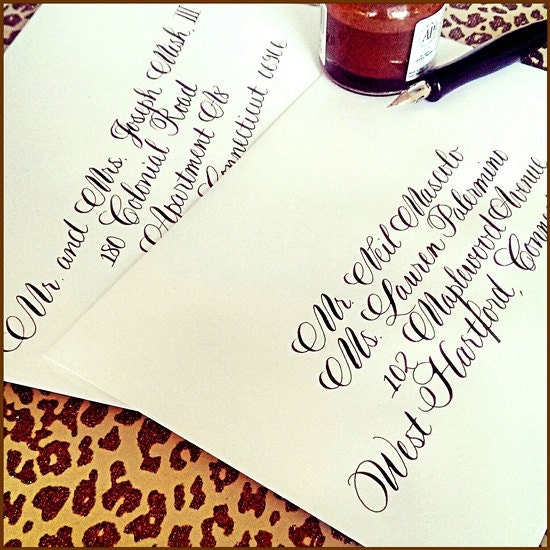 Mr. and Mrs. Joseph Mish, III
180 Colonial Road
Apartment
Connecticut
Mr. Neil Mascolo
Ms. Lauren Palermino
102 Maplewood Avenue
West Hartford, Conne